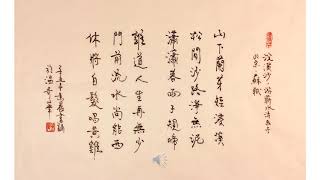 浣溪沙·游蘄水清泉寺
北宋·蘇軾
山下蘭芽短浸溪
松間沙路淨無泥
瀟瀟暮雨子規啼
誰道人生再無少
門前流水尚能西
休將白髮唱黃雞
辛丑年
於溫哥華